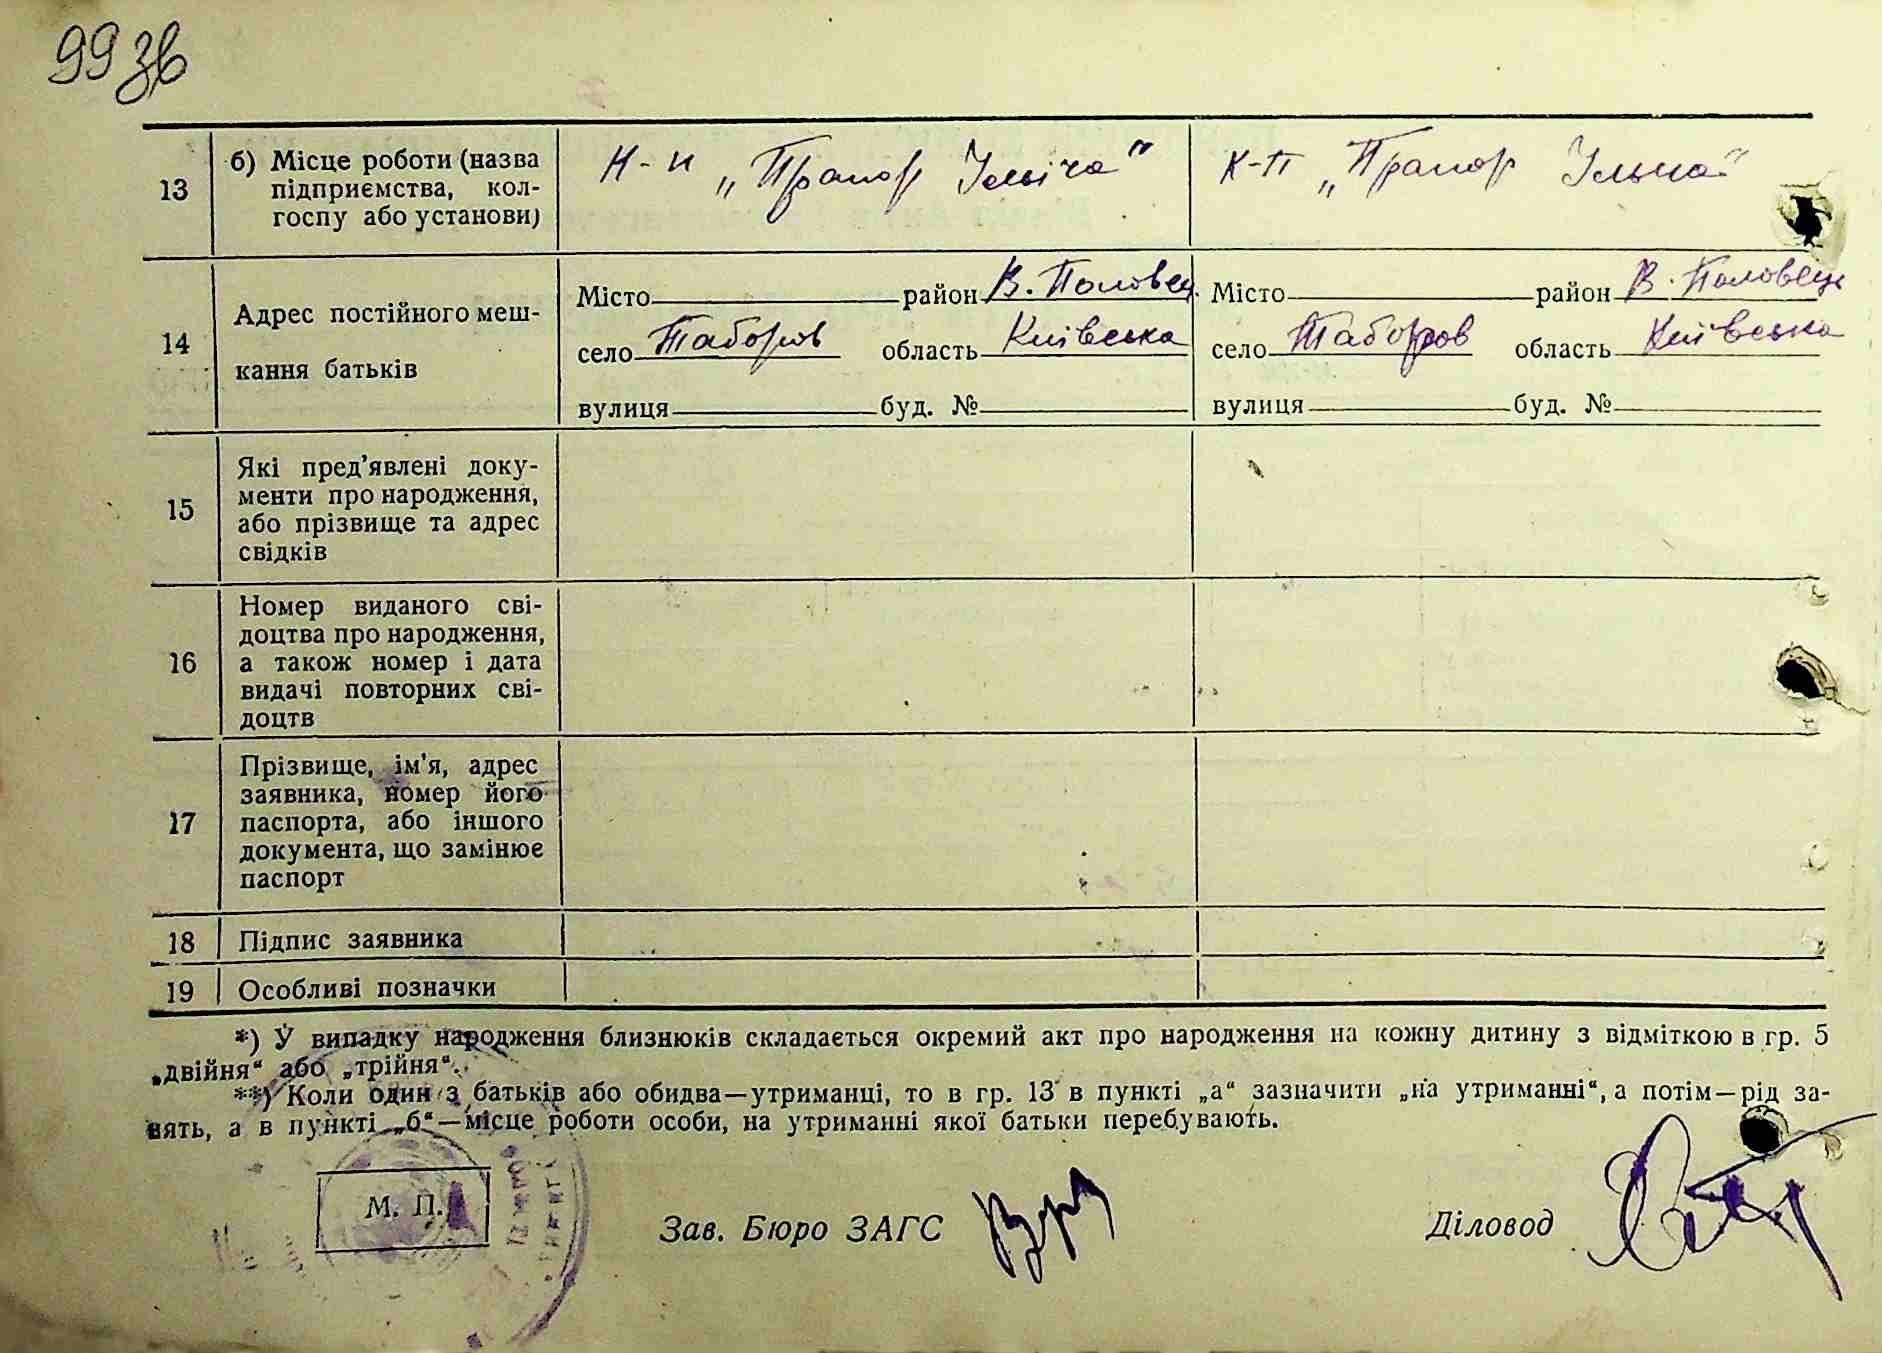 99 зв
13
б) Місце роботи (назва
підприємства, кол-
госпу або установи)
К-п „Прапор Ілліча"
К-п „Прапор Ілліча"
14
Адрес постійного меш-
кання батьків
Місто район В. Половец.
село Таборов область Київська
вулиця буд. №
Місто район В. Половець
село Таборов область Київська
вулиця буд. №
15
Які пред'явлені доку-
менти про народження,
або прізвище та адрес
свідків
16
Номер виданого сві-
доцтва про народження,
а також номер і дата
видачі повторних сві-
доцтв
17
Прізвище, ім'я, адрес
заявника, номер його
паспорта, або іншого
документа, що замінює
паспорт
18 Підпис заявника
19 Особливі позначки
*) У випадку народження близнюків складається окремий акт про народження на кожну дитину з відміткою в гр. 5
„двійня“ або „трійня“.
**) Коли один з батьків або обидва—утриманці, то в гр. 13 в пункті „а“ зазначити „на утриманні“, а потім—рід за-
нять, а в пункті „б“—місце роботи особи, на утриманні якої батьки перебувають.
М. П.
Зав. Бюро ЗАГС
Діловод